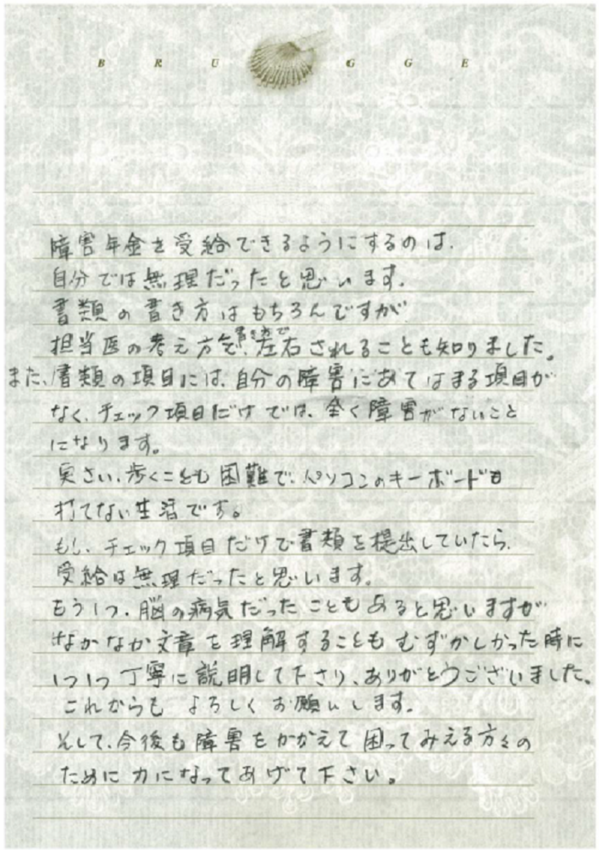 BRU GGE
障害年金を受給できるようにするのは、
自分では無理だったと思います。
書類の書き方はもちろんですが
担当医の考え方で左右されることも知りました。
また、書類の項目には、自分の障害にあてはまる項目が
なく、チェック項目だけでは、全く障害がないこと
になります。
実さい、歩くことも困難で、パソコンのキーボードも
打てない生活です。
もし、チェック項目だけで書類を提出していたら、
受給は無理だったと思います。
もう1つ、脳の病気だったこともあると思いますが
なかなか文章を理解することもむずかしかった時に
1つ1つ丁寧に説明して下さり、ありがとうございました。
これからもよろしくお願いします。
そして、今後も障害をかかえて困ってみえる方々の
ために力になってあげて下さい。